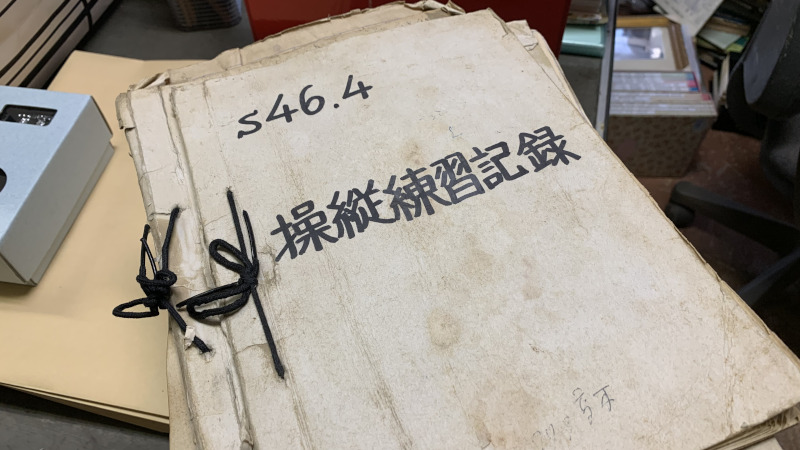 S46.4
操縦練習記録